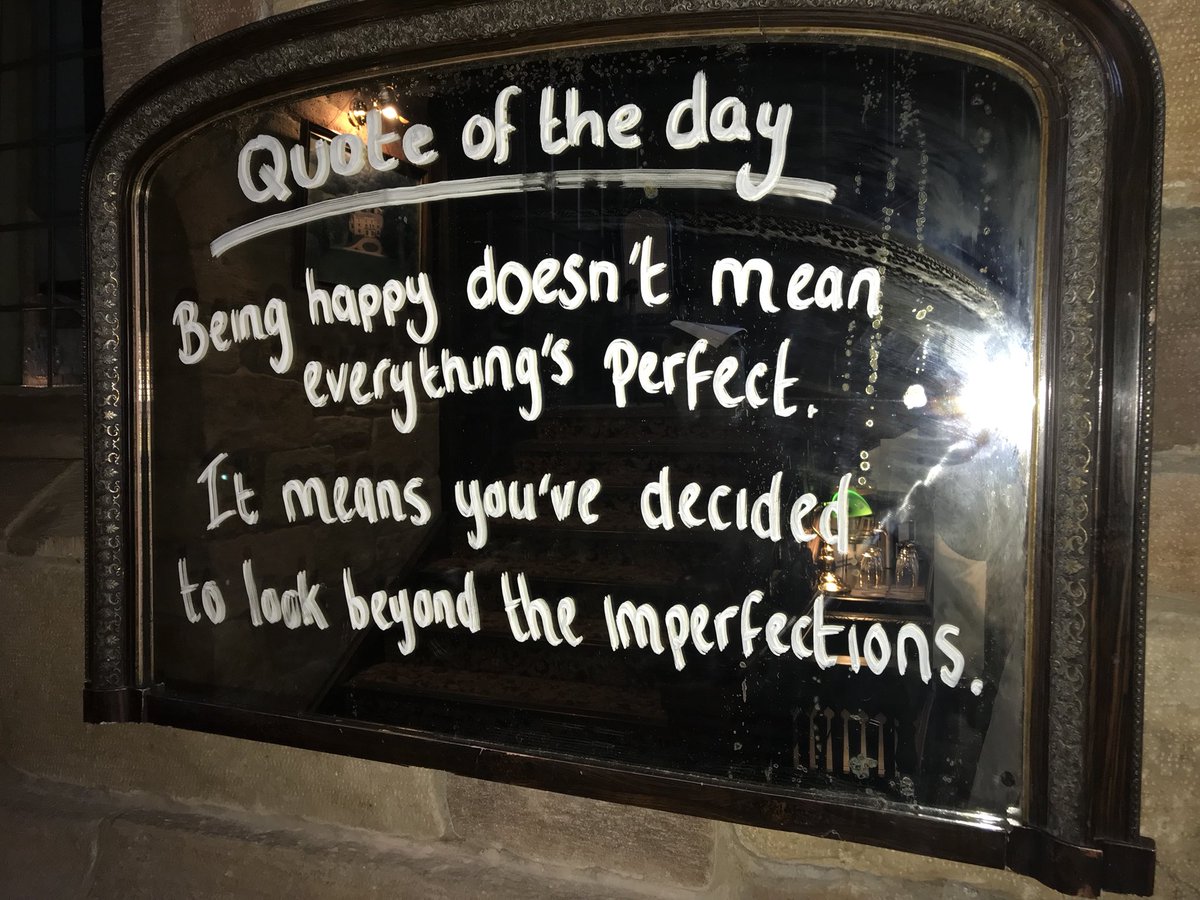 Quote of the day
Being happy doesn't mean
everything's perfect.
It means you've decided
to look beyond the imperfections.